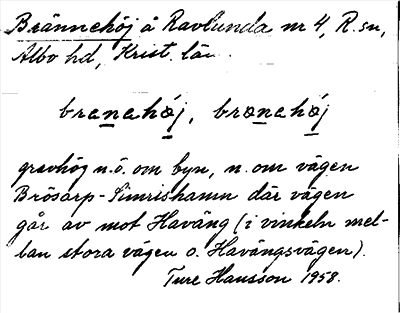 Brännehöj å Ravlunda nr 4, R. sn,
Albo hd, Krist. län.
branahøj, brønahøj
gravhög n.ö. om byn, n. om vägen
Brösarp-Simrishamn där vägen
går av mot Haväng (i vinkeln mel-
lan stora vägen o. Havängsvägen).
Ture Hansson 1958.